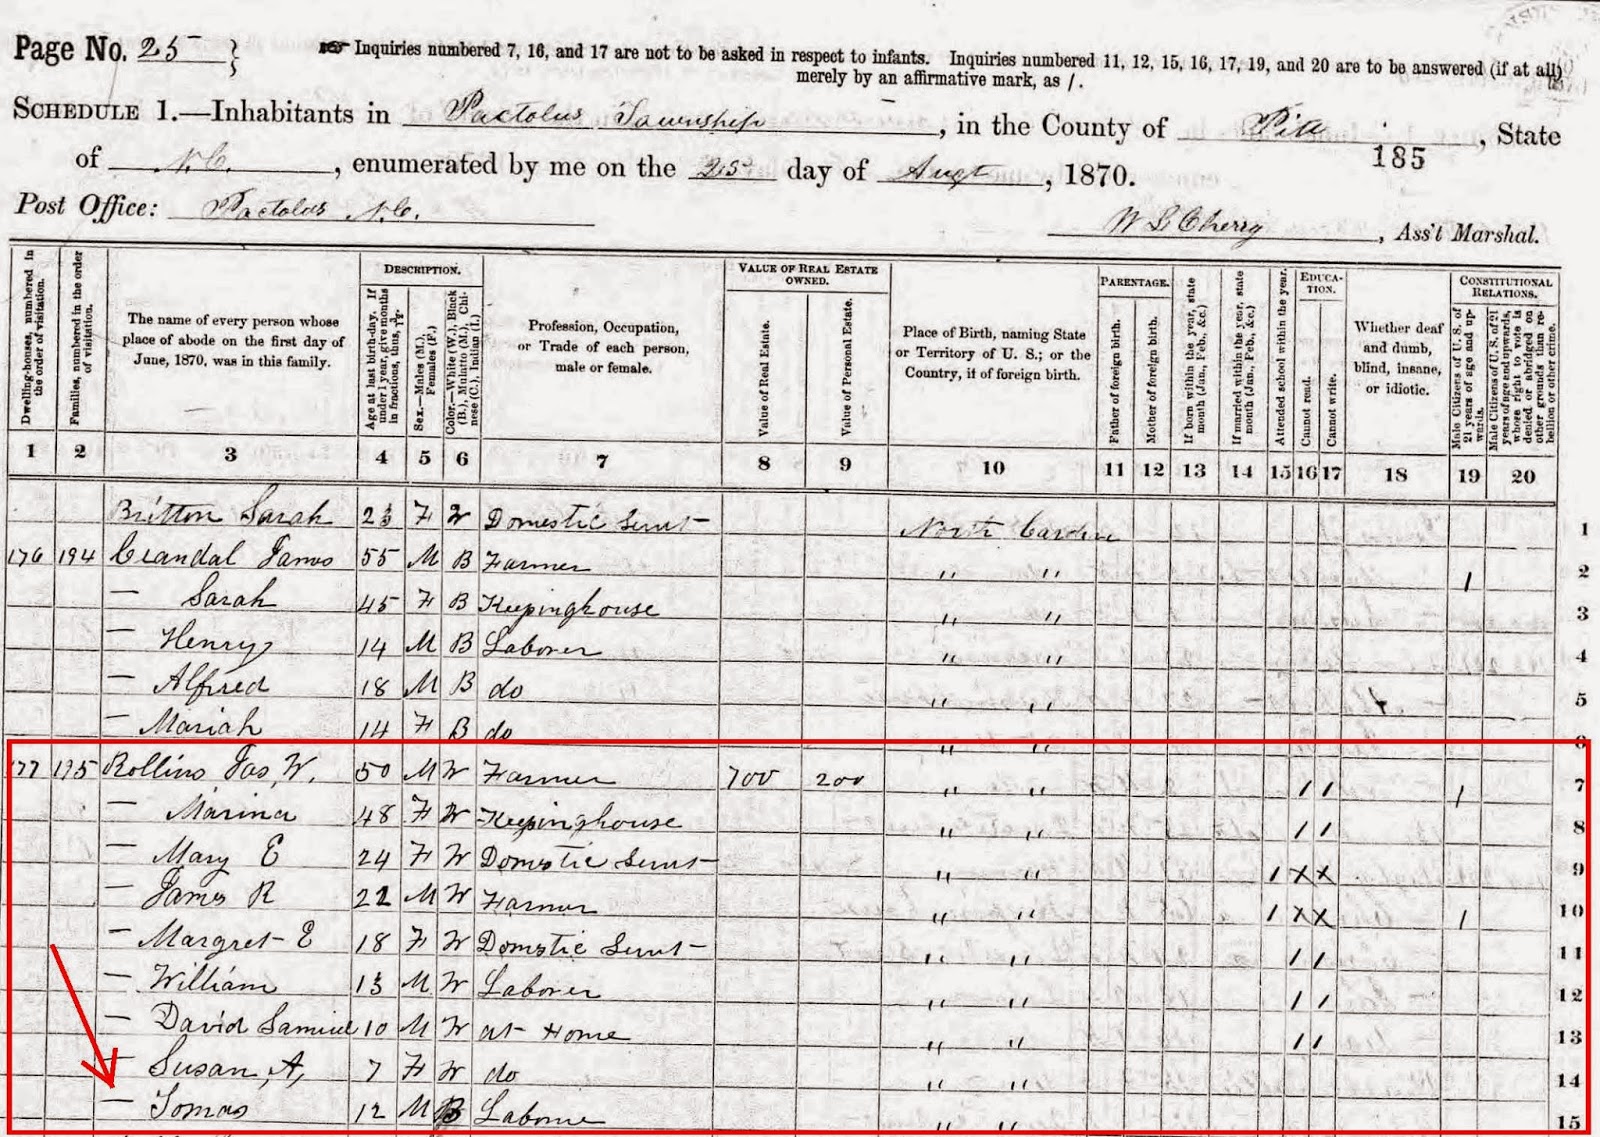 Page No. 25 }
Inquiries numbered 7, 16, and 17 are not to be asked in respect to infants. Inquiries numbered 11, 12, 15, 16, 17, 19, and 20 are to be answered (if at all)
merely by an affirmative mark, as /.
SCHEDULE 1.—Inhabitants in Pactolus Township, in the County of Pitt, State
of N.C., enumerated by me on the 25 day of Augt, 1870.
185
Post Office: Pactolus N.C.
W L Cherry, Ass't Marshal.
Dwelling-houses, numbered in the order of visitation.
Families, numbered in the order of visitation.
The name of every person whose place of abode on the first day of June, 1870, was in this family.
DESCRIPTION.
Age at last birth-day. If under 1 year, give months in fractions, thus,
Sex.—Males (M.), Females (F.)
Color.—White (W.), Black (B.), Mulatto (M.), Chinese (C.), Indian (I.)
Profession, Occupation, or Trade of each person, male or female.
VALUE OF REAL ESTATE OWNED.
Value of Real Estate.
Value of Personal Estate.
Place of Birth, naming State or Territory of U. S.; or the Country, if of foreign birth.
PARENTAGE.
Father of foreign birth.
Mother of foreign birth.
If born within the year, state month (Jan., Feb., &c.)
If married within the year, state month (Jan., Feb., &c.)
Attended school within the year.
EDUCATION.
Cannot read.
Cannot write.
Whether deaf and dumb, blind, insane, or idiotic.
CONSTITUTIONAL RELATIONS.
Male Citizens of U. S. of 21 years of age and upwards.
Male Citizens of U. S. of 21 years of age and upwards, whose right to vote is denied or abridged on other grounds than rebellion or other crime.
1 2 3 4 5 6 7 8 9 10 11 12 13 14 15 16 17 18 19 20
Britton Sarah 23 F W Domestic Servt North Carolina 1
176 194 Crandal James 55 M B Farmer " " 1 2
— Sarah 45 F B Keepinghouse " " 3
— Henry 14 M B Laborer " " 4
— Alfred 18 M B do " " 5
— Mariah 14 F B do " " 6
177 195 Rollins Jas W. 50 M W Farmer 700 200 " " / / 1 7
— Marina 48 F W Keepinghouse " " / / 8
— Mary E 24 F W Domestic Servt " " 1 X X 9
— James R 22 M W Farmer " " 1 X X 1 10
— Margret E 18 F W Domstic Servt " " / / 11
— William 13 M W Laborer " " / / 12
— David Samuel 10 M W at Home " " / / 13
— Susan, A, 7 F W do " " 14
— Tomas 12 M B Laborer " " 15